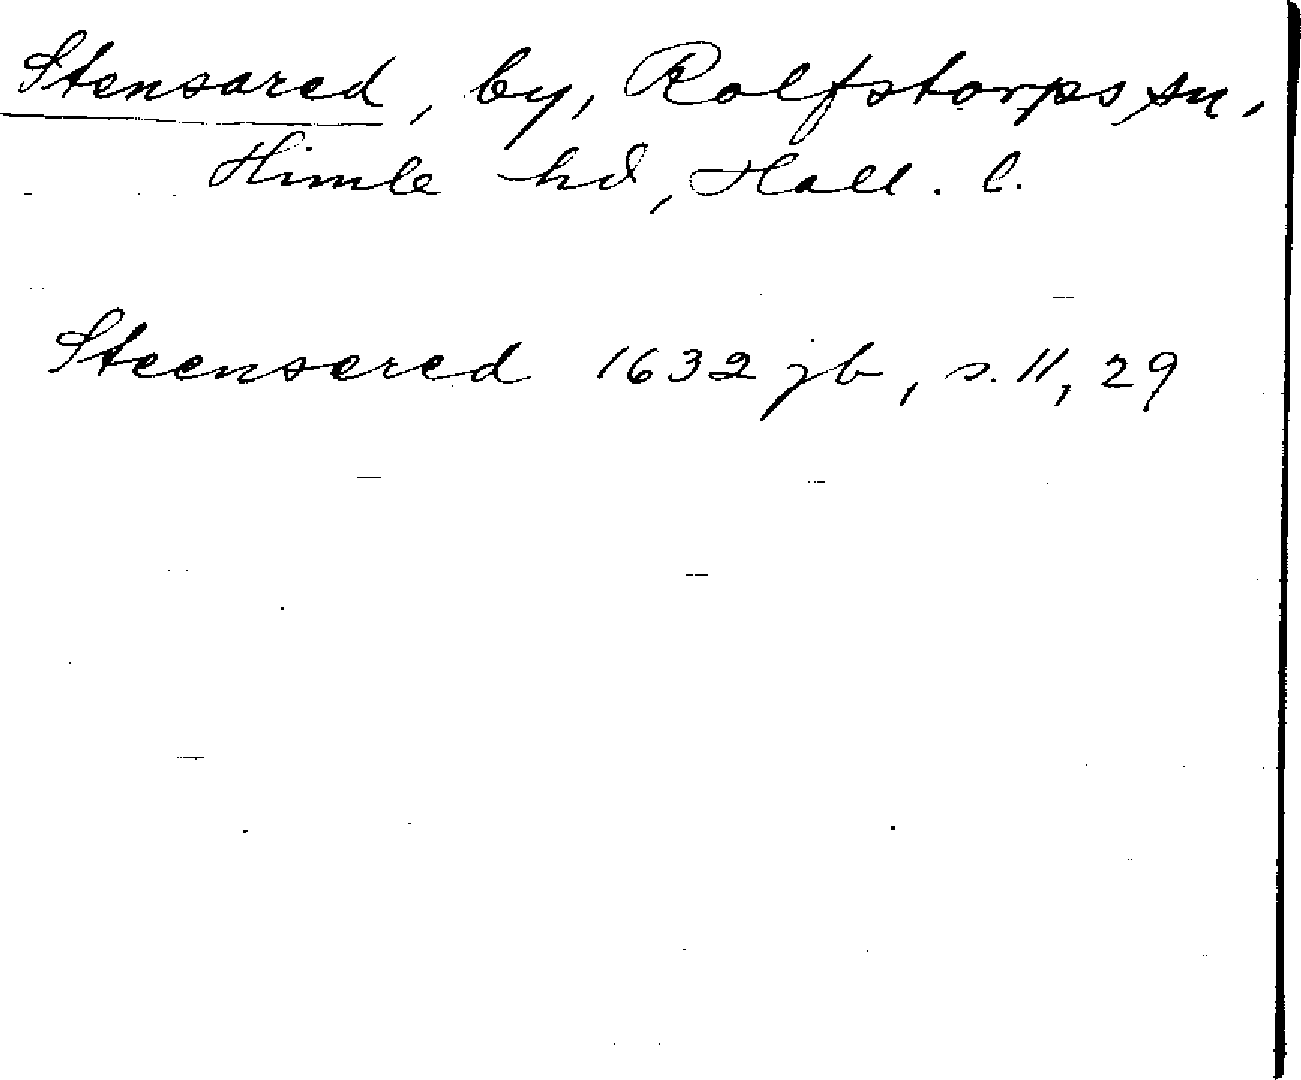 Stensared, by, Rolfstorps sn,
Himle hd, Hall. l.
Steensered 1632 jb, s. 11, 29